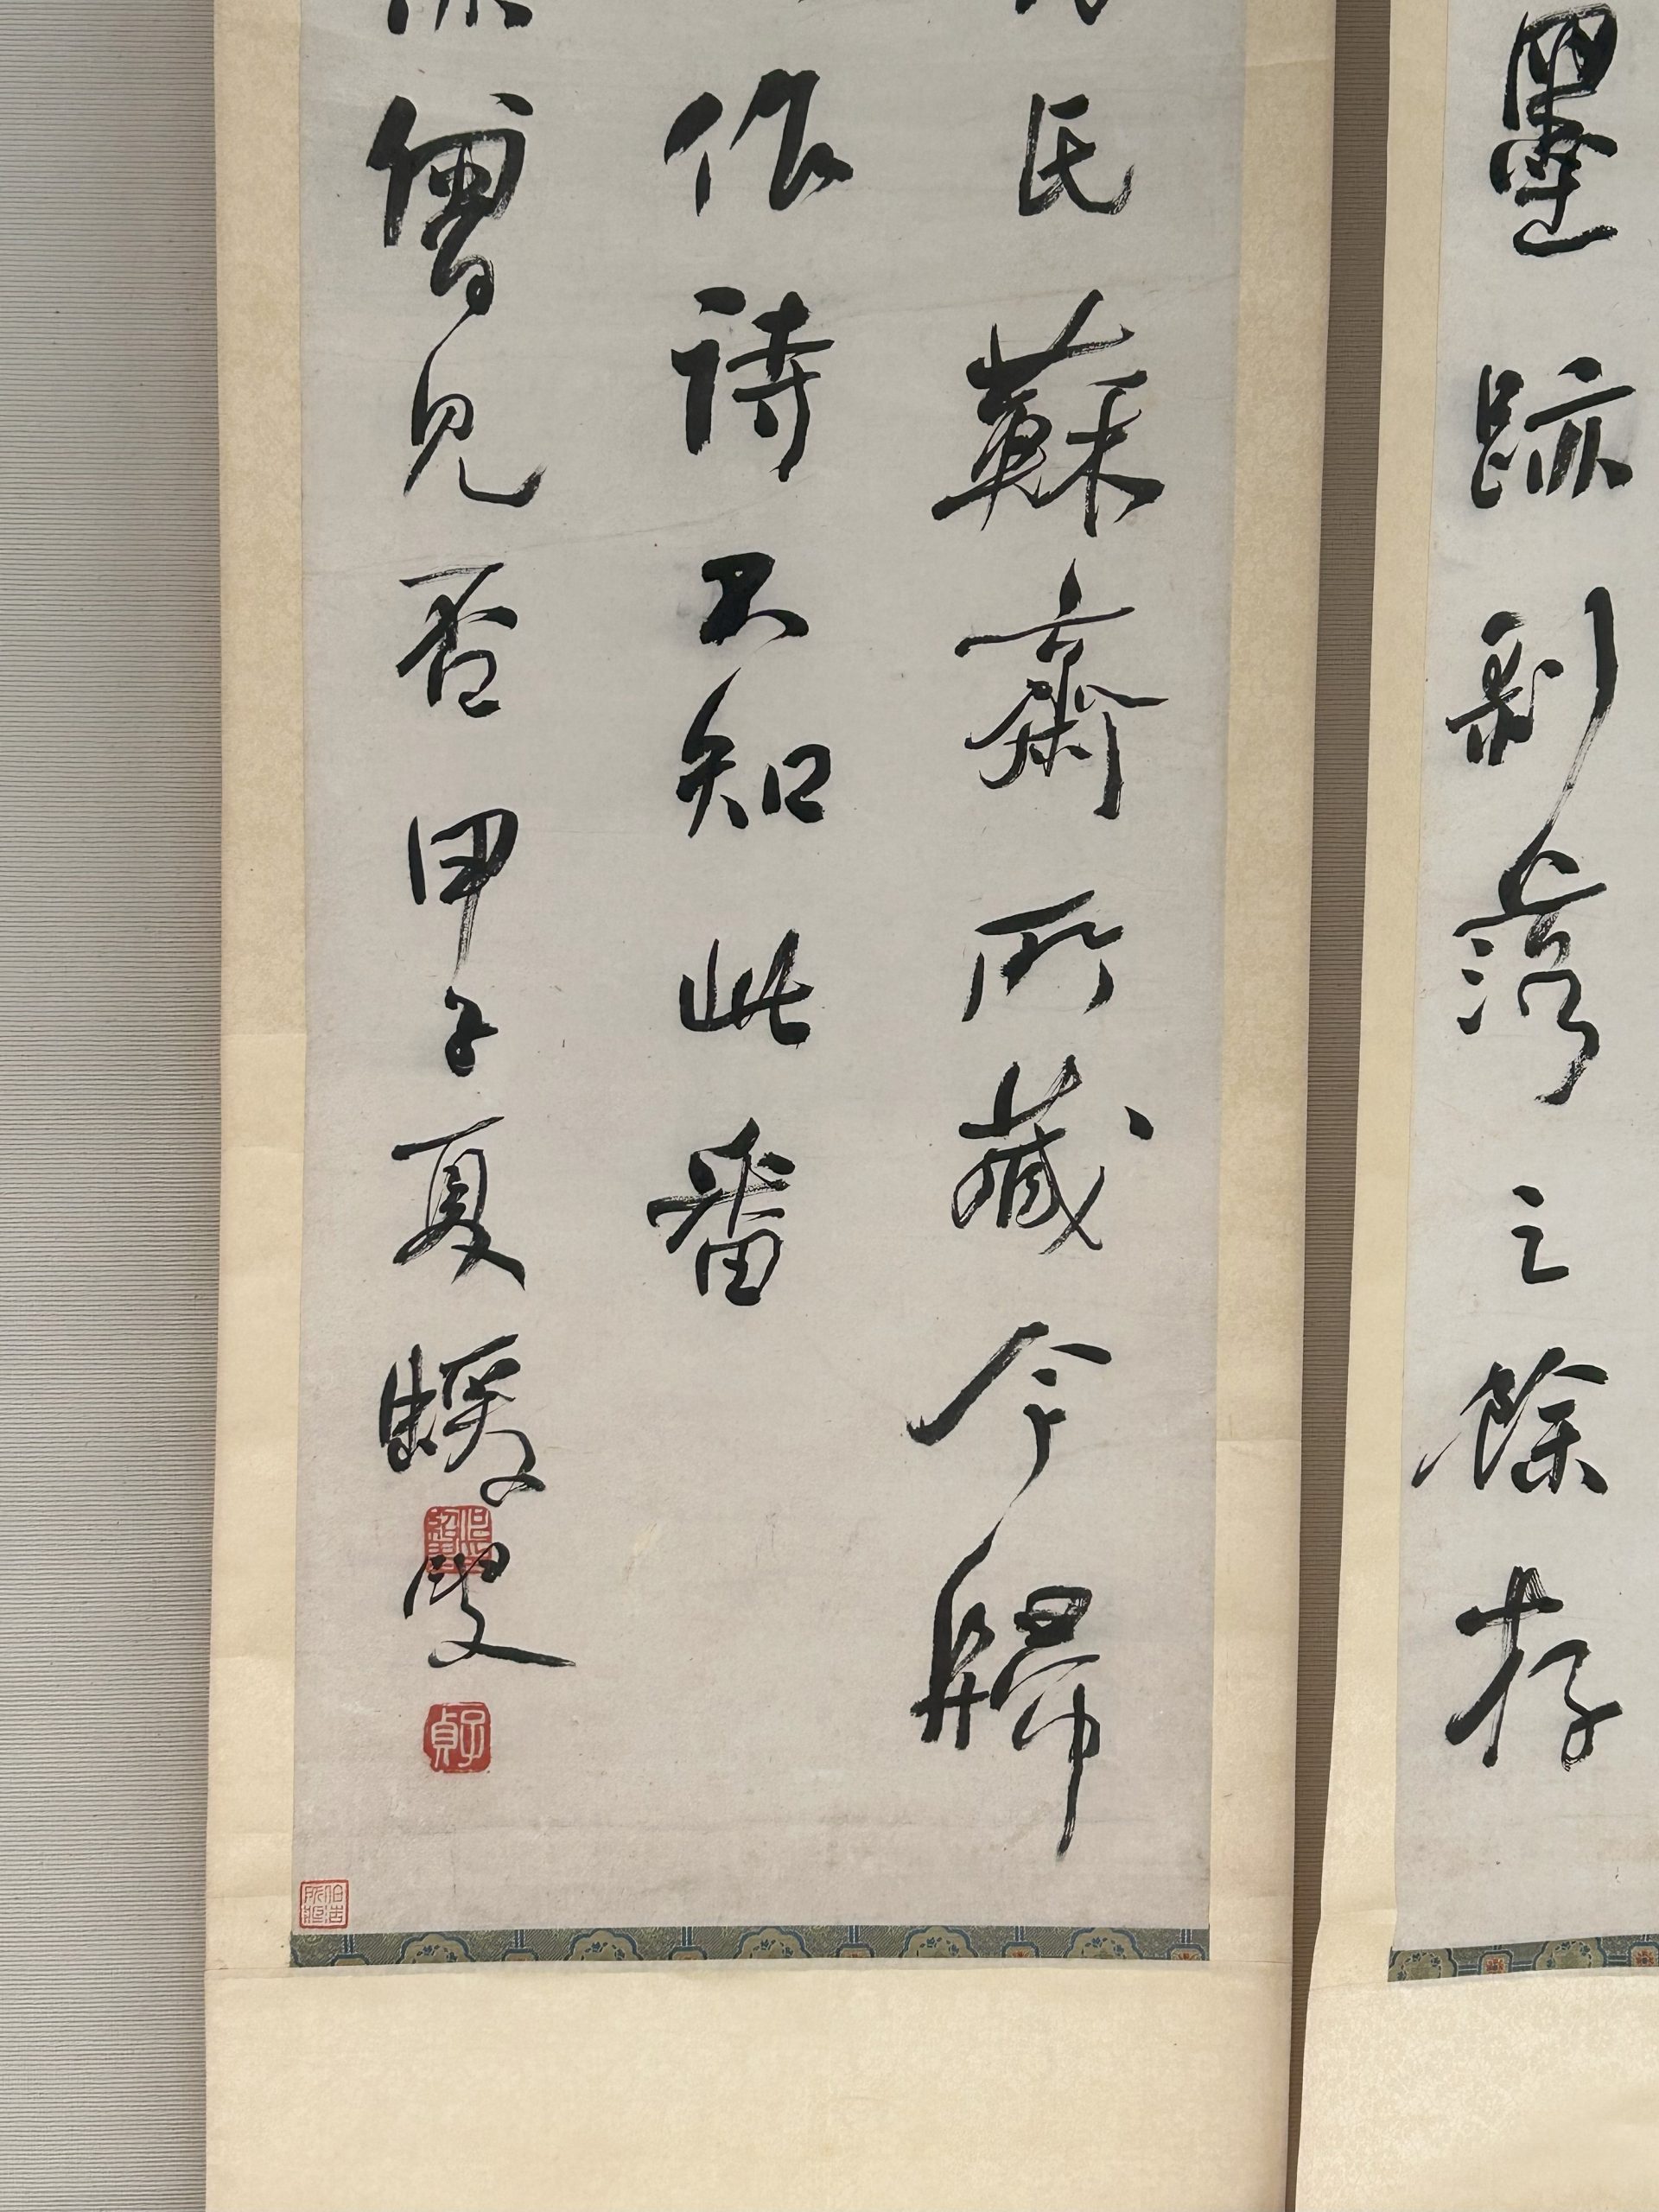 墨跡剥落之餘存
氏蘇齋所藏今歸
作詩不知此番
曾見否甲子夏蝯叟
子貞